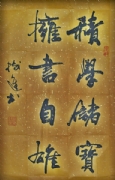 積學儲寶
擁書自雄